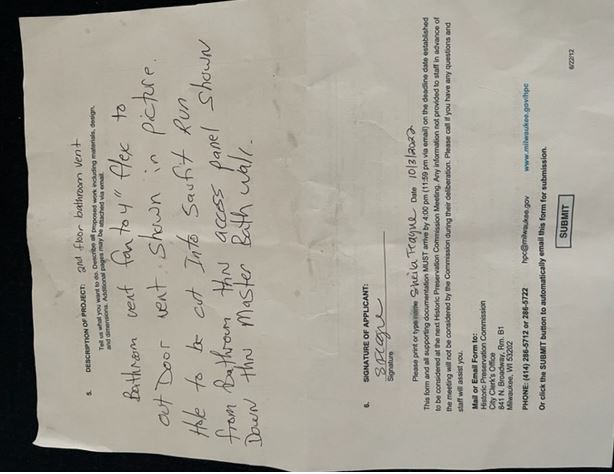 5. DESCRIPTION OF PROJECT: 2nd floor bathroom vent
Tell us what you want to do. Describe all proposed work including materials, design,
and dimensions. Additional pages may be attached via email.
Bathroom vent fan to 4" flex to
out Door vent. Shown in picture.
Hole to be cut Into Soufit Run
from Bathroom thru access panel shown
Down thru Master Bath wall.
6. SIGNATURE OF APPLICANT:
Signature
Please print or type name Sheila Teague Date 10/3/2022
This form and all supporting documentation MUST arrive by 4:00 pm (11:59 pm via email) on the deadline date established
to be considered at the next Historic Preservation Commission Meeting. Any information not provided to staff in advance of
the meeting will not be considered by the Commission during their deliberation. Please call if you have any questions and
staff will assist you.
Mail or Email Form to:
Historic Preservation Commission
City Clerk's Office
841 N. Broadway, Rm. B1
Milwaukee, WI 53202
PHONE: (414) 286-5712 or 286-5722 hpc@milwaukee.gov www.milwaukee.gov/hpc
Or click the SUBMIT button to automatically email this form for submission.
SUBMIT
6/22/12